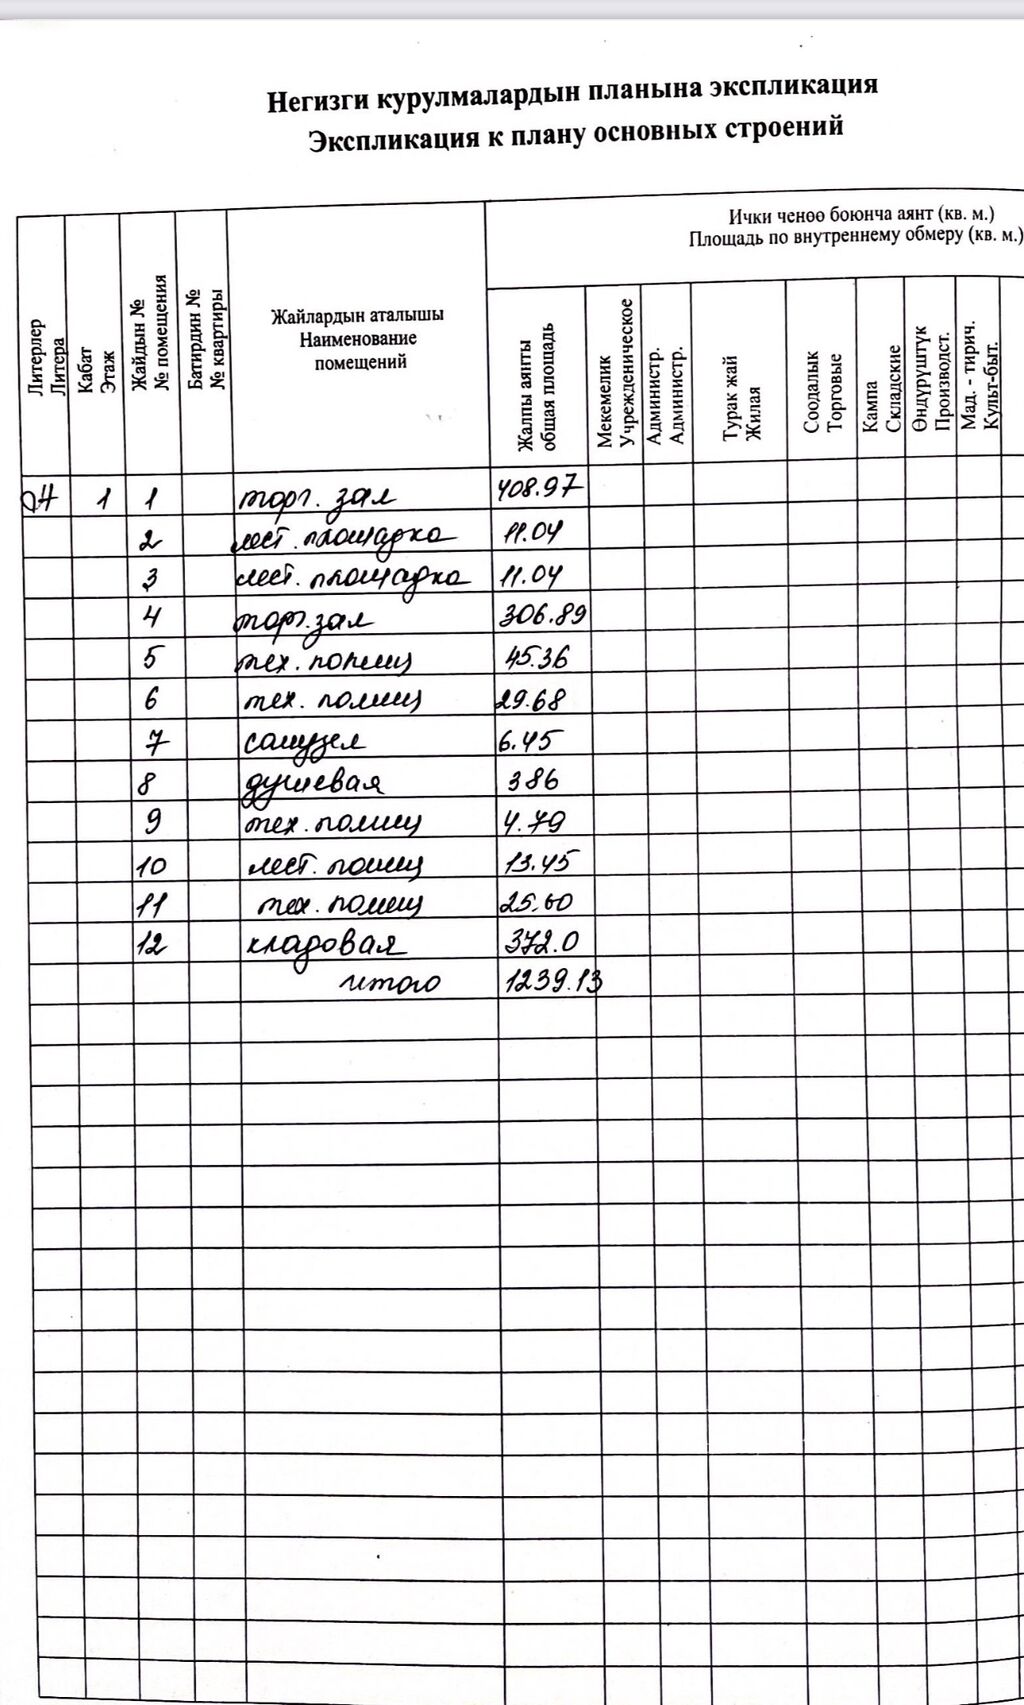 Негизги курулмалардын планына экспликация
Экспликация к плану основных строений
Ички ченөө боюнча аянт (кв. м.)
Площадь по внутреннему обмеру (кв. м.)
Литерлер
Литера
Кабат
Этаж
Жайдын №
№ помещения
Батирдин №
№ квартиры
Жайлардын аталышы
Наименование
помещений
Жалпы аянты
общая площадь
Мекемелик
Учрежденическое
Администр.
Администр.
Турак жай
Жилая
Соодалык
Торговые
Кампа
Складские
Өндүрүштүк
Производст.
Мад. - тирич.
Культ-быт.
1 1 торг. зал 408.97
2 лест. площадка 11.04
3 лест. площадка 11.04
4 торг. зал 306.89
5 тех. помещ 45.36
6 тех. помещ 29.68
7 санузел 6.45
8 душевая 386
9 тех. помещ 4.79
10 лест. помещ 13.45
11 тех. помещ 25.60
12 кладовая 372.0
итого 1239.13